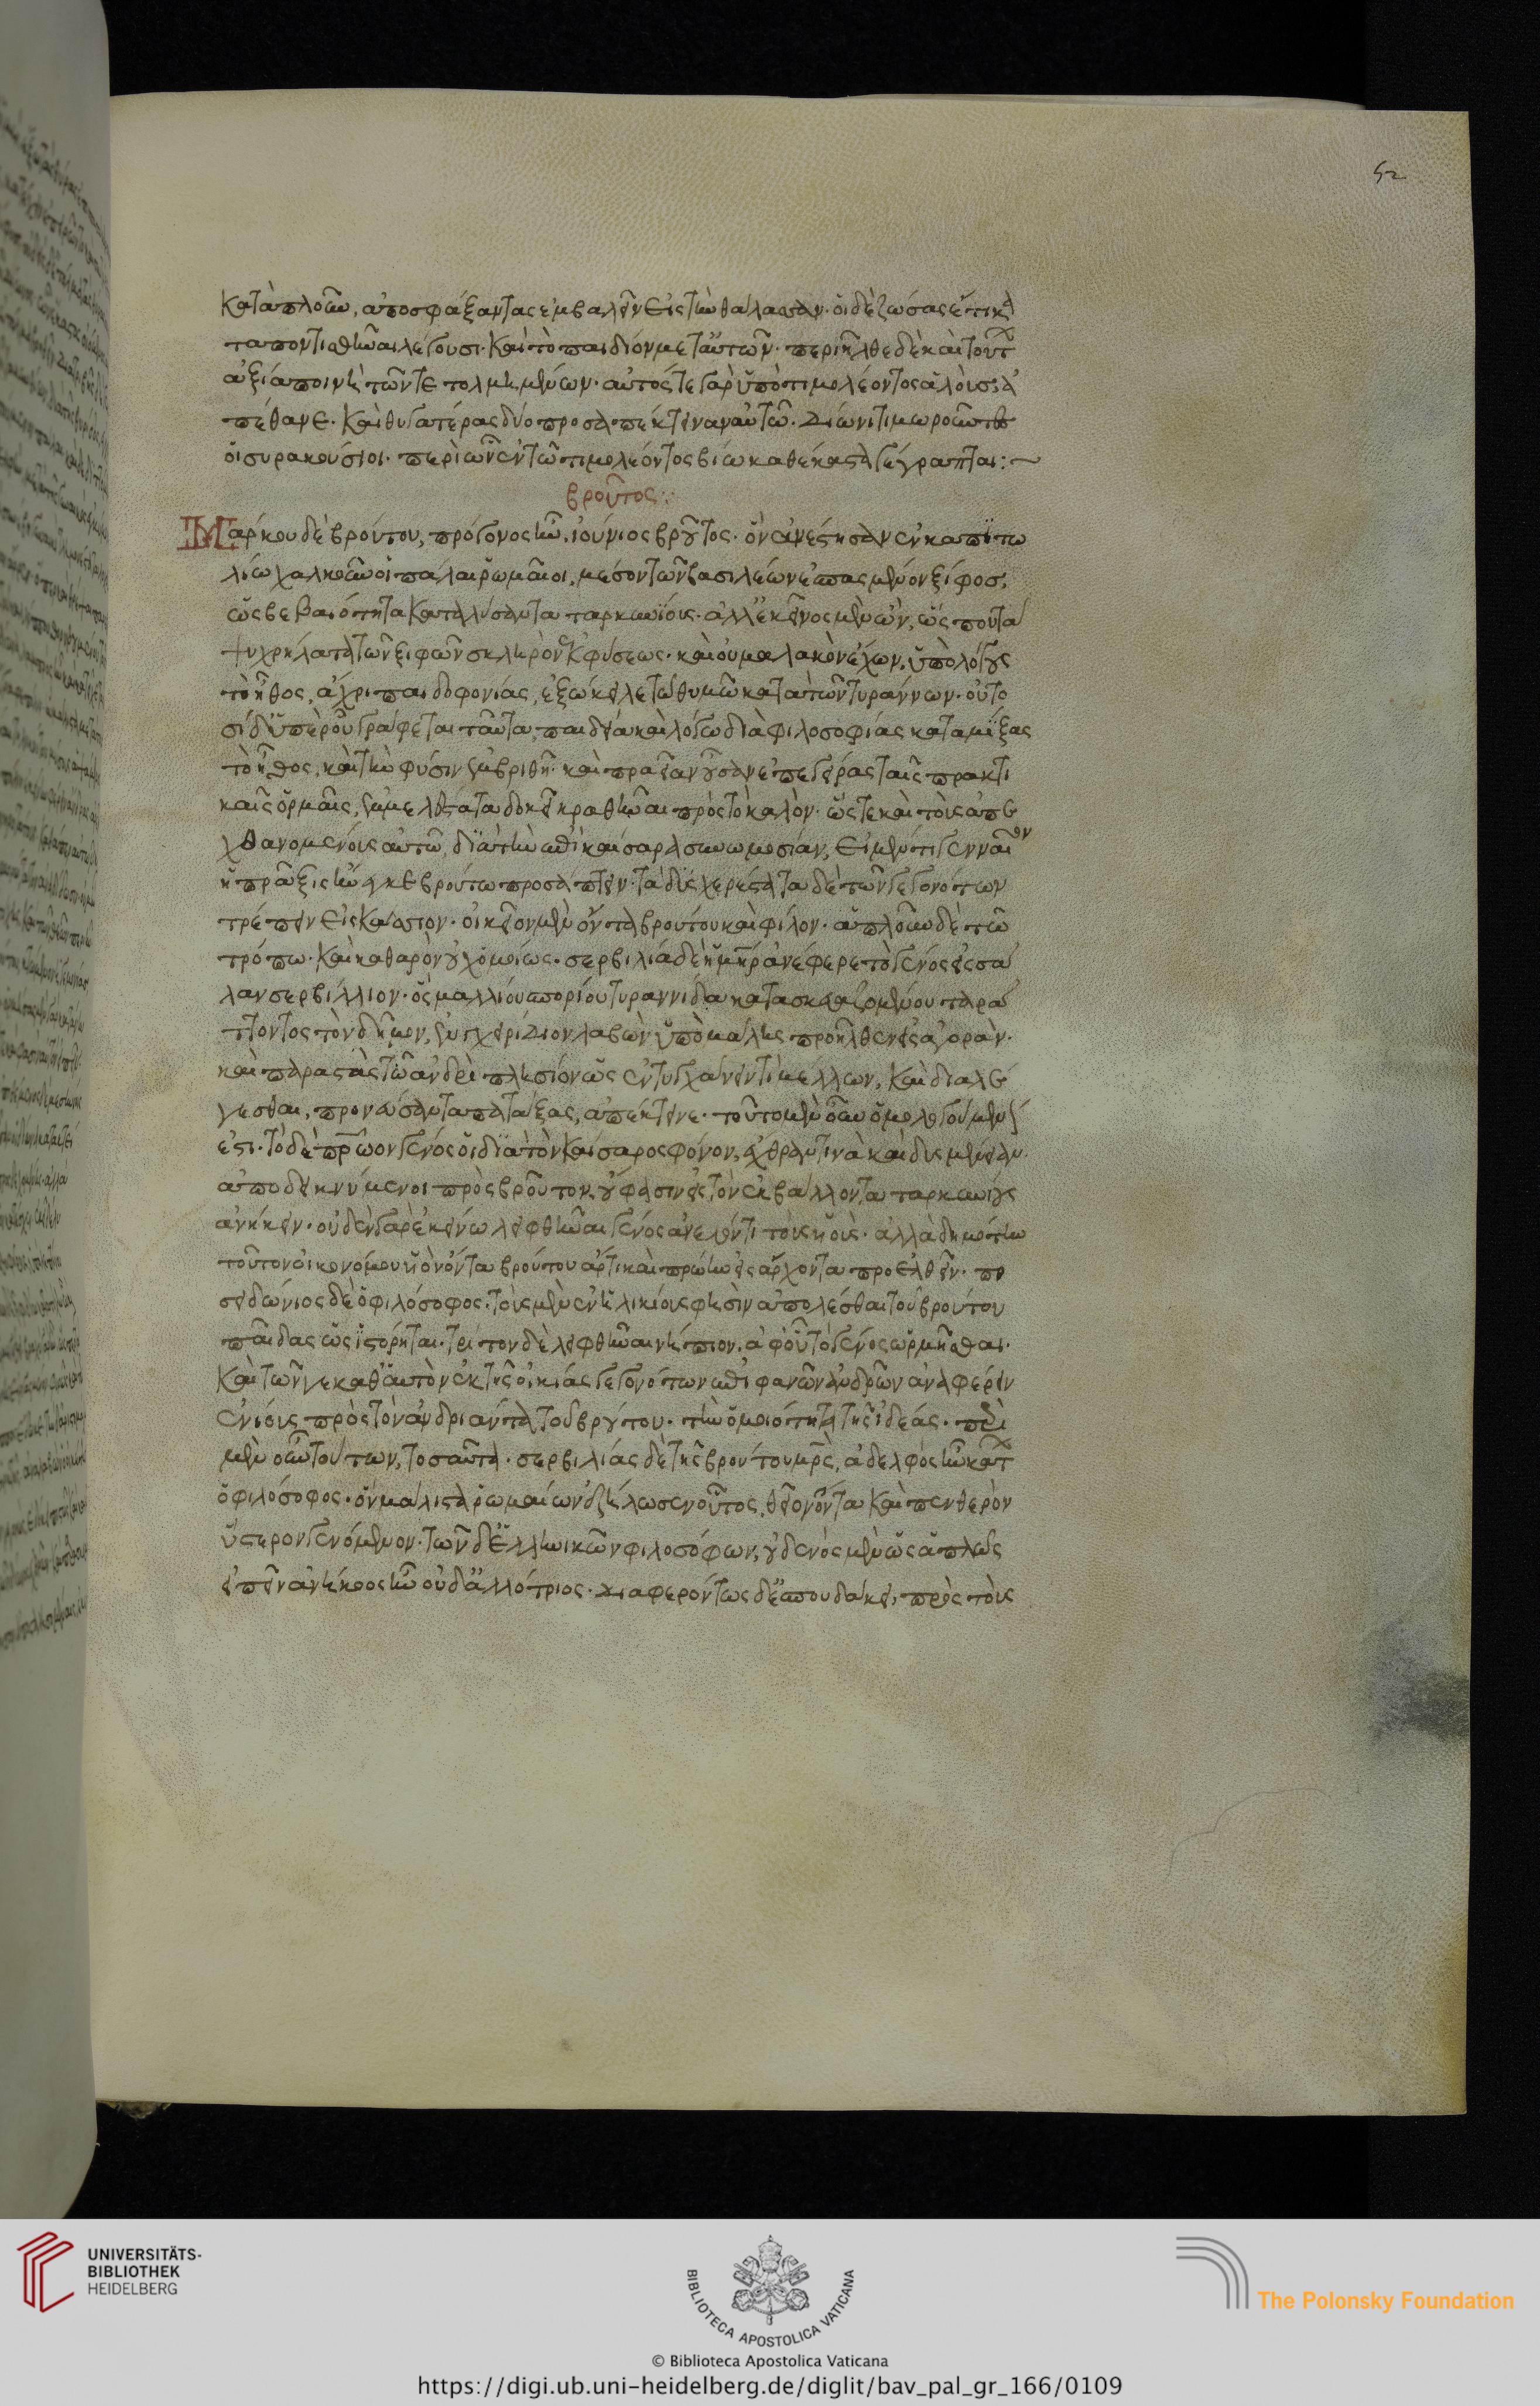 52
κατὰ πλοῦν, ἀποσφάξαντας ἐμβαλεῖν εἰς τὴν θάλασσαν. οἱ δὲ ζώσας ἔτι κα
ταποντισθῆναι λέγουσι. καὶ τὸ παιδίον μετ' αὐτῶν. περιῆλθε δὲ καὶ τοῦτ
ἀξία ποινὴ τῶν τετολμημένων. αὐτός τε γὰρ ὑπὸ τιμολέοντος ἁλοὺς, ἀ
πέθανε. καὶ θυγατέρας δύο προσαπέκτειναν αὐτῶ. Δίωνι τιμωροῦντες
οἱ συρακούσιοι. περὶ ὧν ἐν τῶ τιμολέοντος βίω καθέκαστα γέγραπται:~
βροῦτος:
Μάρκου δὲ βρούτου, πρόγονος ἦν ἰούνιος βροῦτος. ὃν ἀνέστησαν ἐν καπϊτω
λίω χαλκοῦν οἱ πάλαι ῥωμαῖοι, μέσον τῶν βασιλέων ἐσπασμένον ξίφος,
ὡς βεβαιότητα καταλύσαντα ταρκυνΐοις. ἀλλ' ἐκεῖνος μὲν ὢν, ὥσπερ τὰ
ψυχρήλατα τῶν ξιφῶν σκληρὸν ἐκ φύσεως. καὶ οὐ μαλακὸν ἔχων, ὑπὸ λόγου
τὸ ἦθος, ἄχρι παιδοφονίας, ἐξώκειλε τῶ θυμῶ κατὰ τῶν τυράννων. οὑτο
σὶ δ' ὑπὲρ οὗ γράφεται ταῦτα, παιδεία καὶ λόγω διὰ φιλοσοφίας καταμΐξας
τὸ ἦθος, καὶ τὴν φύσιν ἐμβριθῆ. καὶ πραεῖαν οὖσαν ἐπεγείρας ταῖς πρακτι
καῖς ὁρμαῖς, ἐμμελέστατα δοκεῖ κραθῆναι πρὸς τὸ καλὸν. ὥστε καὶ τοὺς ἀπε
χθανομένους αὐτῶ, διὰ τὴν ἐπὶ καίσαρα συνωμοσίαν, εἰ μέν τι γενναῖον
ἡ πρᾶξις ἤνεγκε βρούτω προσάπτειν. τὰ δυσχερέστατα δὲ τῶν γεγονότων
τρέπειν εἰς κάσσιον. οἰκεῖον μὲν ὄντα βρούτου καὶ φίλον. ἁπλοῦν δὲ τῶ
τρόπω. καὶ καθαρὸν οὐχ ὁμοίως. σερβιλία δὲ ἡ μήτηρ ἀνέφερε τὸ γένος εἰς ἅ
λαν σερβίλλιον. ὃς μαλλίου σπορίου τυραννίδα κατασκευαζομένου ταρά
ττοντος τὸν δῆμον, ἐγχειρίδιον λαβὼν ὑπὸ μάλης προῆλθεν εἰς ἀγορὰν.
καὶ παραστὰς τῶ ἀνδρὶ πλησίον ὡς ἐντυγχάνειν τὶ μέλλων, καὶ διαλέ
γεσθαι, προσνεύσαντα πατάξας, ἀπέκτεινε. τοῦτο μὲν οὖν ὁμολογούμενόν
ἐστι. τὸ δὲ πατρῶον γένος οἱ διὰ τὸν καίσαρος φόνον, ἔχθραν τινὰ καὶ δυσμένειαν
ἀποδεικνύμενοι πρὸς βροῦτον, οὔ φασιν εἰς τὸν ἐκβάλλοντα ταρκυνίους
ἀνήκειν. οὐδὲν γὰρ ἐκείνω λειφθῆναι γένος ἀνελόντι τοὺς υἱοὺς. ἀλλὰ δημότην
τοῦτον οἰκονόμου υἱὸν ὄντα βρούτου ἄρτι καὶ πρώην εἰς ἄρχοντα προελθεῖν. πο
σειδώνιος δὲ ὁ φιλόσοφος. τοὺς μὲν ἐν ἡλικίοις φησὶν ἀπολέσθαι τοῦ βρούτου
παῖδας ὡς ἱστόρηται. τρίτον δὲ λειφθῆναι νήπιον. ἀφ' οὗ τὸ γένος ὡρμῆσθαι.
καὶ τῶν γε καθ' αὑτὸν ἐκ τῆς οἰκίας γεγονότων ἐπιφανῶν ἀνδρῶν ἀναφέρειν
ἐνίους πρὸς τὸν ἀνδριάντα τοῦ βρούτου. τὴν ὁμοιότητα τῆς ἰδέας. περὶ
μὲν οὖν τούτων, τοσαῦτα. σερβιλίας δὲ τῆς βρούτου μητρὸς, ἀδελφὸς ἦν κάτων
ὁ φιλόσοφος. ὃν μάλιστα ῥωμαίων ἐζήλωσεν οὗτος, θεῖον ὄντα καὶ πενθερὸν
ὕστερον γενόμενον. τῶν δ' ἑλληνικῶν φιλοσόφων, οὐδενὸς μὲν ὡς ἁπλῶς
εἰπεῖν ἀνήκοος ἦν οὐδ' ἀλλότριος. διαφερόντως δ' ἐσπουδάκει, πρὸς τοὺς
UNIVERSITÄTS-
BIBLIOTHEK
HEIDELBERG
BIBLIOTECA APOSTOLICA VATICANA
The Polonsky Foundation
© Biblioteca Apostolica Vaticana
https://digi.ub.uni-heidelberg.de/diglit/bav_pal_gr_166/0109